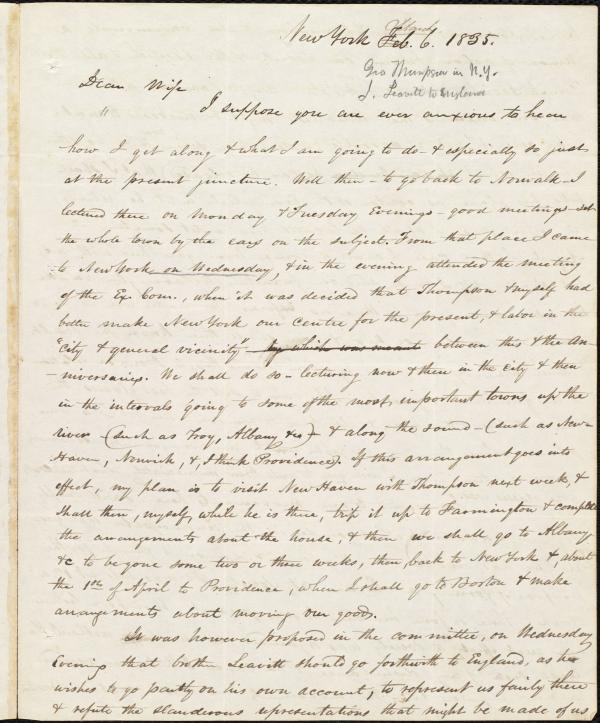 March
New York Feb. 6. 1835.
Geo Thompson in N.Y.
J. Leavitt to England
Dear Wife
" I suppose you are ever anxious to hear
how I get along & what I am going to do - & especially so just
at the present juncture. Well then - to go back to Norwalk - I
lectured there on Monday & Tuesday Evenings - good meetings - set
the whole town by the ears on the subject. From that place I came
to New York on Wednesday, & in the evening attended the meeting
of the Ex. Com., when it was decided that Thompson & myself had
better make New York our centre for the present, & labor in the
"city & general vicinity" - by which was meant between this & the An-
-niversaries. We shall do so - lecturing now & then in the city & then
in the intervals going to some of the most important towns up the
river (such as Troy, Albany &c) - & along the sound - (such as New-
Haven, Norwich, &, I think Providence). If this arrangement goes into
effect, my plan is to visit New Haven with Thompson next week, &
shall then, myself, while he is there, trip it up to Farmington & complete
the arrangements about the house, & then we shall go to Albany
&c to be gone some two or three weeks, then back to New York &, about
the 1st of April to Providence, when I shall go to Boston & make
arrangements about moving our goods.
It was however proposed in the committee, on Wednesday
Evening that brother Leavitt should go forthwith to England, as he
wishes to go partly on his own account, to represent us fairly there
& refute the slanderous representations that might be made of us